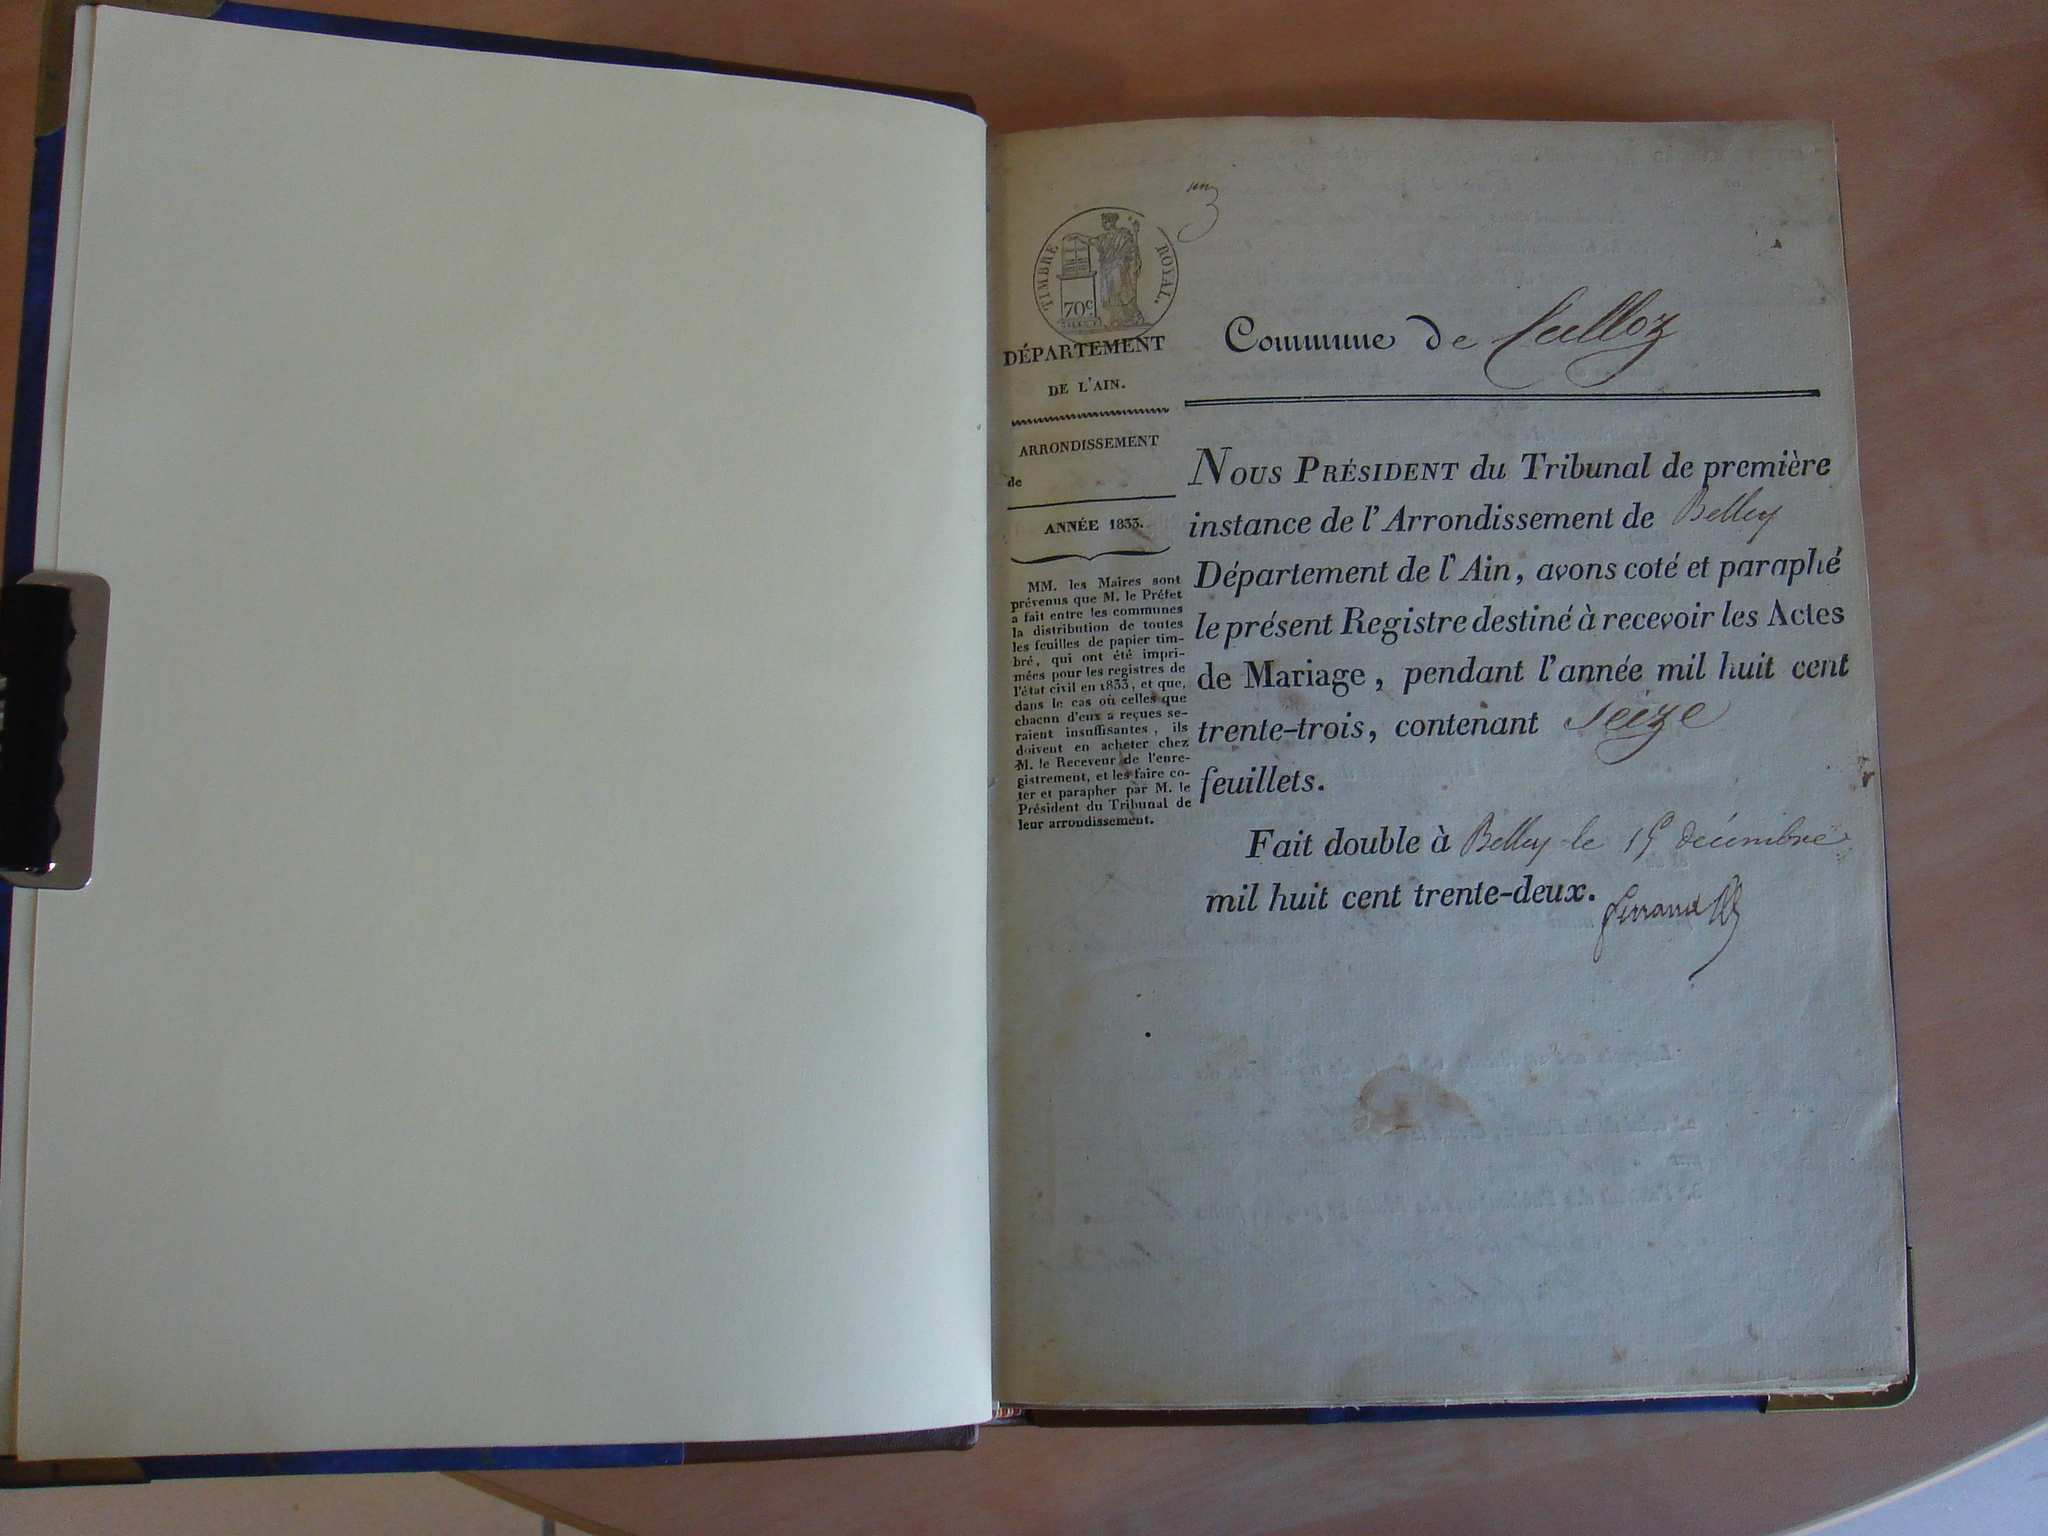 un
TIMBRE ROYAL.
70c
DÉPARTEMENT
DE L'AIN.
ARRONDISSEMENT
de
ANNÉE 1833.
MM. les Maires sont
prévenus que M. le Préfet
a fait entre les communes
la distribution de toutes
les feuilles de papier tim-
bré, qui ont été impri-
mées pour les registres de
l'état civil en 1833, et que,
dans le cas où celles que
chacun d'eux a reçues se-
raient insuffisantes, ils
doivent en acheter chez
M. le Receveur de l'enre-
gistrement, et les faire co-
ter et parapher par M. le
Président du Tribunal de
leur arrondissement.
Commune de Culloz
NOUS PRÉSIDENT du Tribunal de première
instance de l'Arrondissement de Belley
Département de l'Ain, avons coté et paraphé
le présent Registre destiné à recevoir les Actes
de Mariage, pendant l'année mil huit cent
trente-trois, contenant seize
feuillets.
Fait double à Belley le 15 décembre
mil huit cent trente-deux.
ferrand